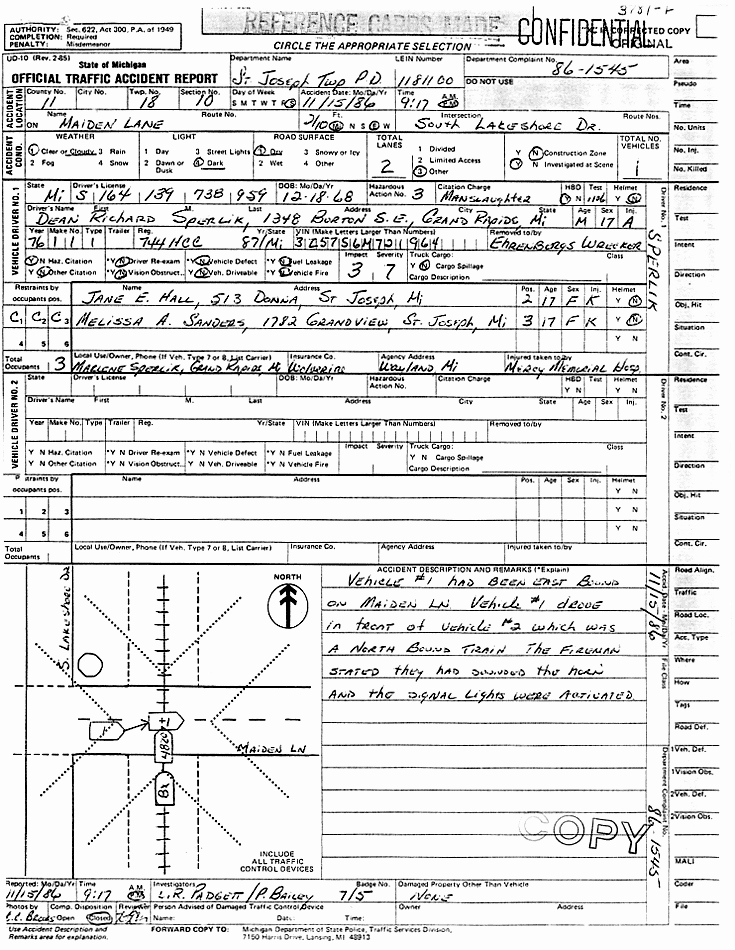 3181-F
REFERENCE CARDS MADE
CONFIDENTIAL
CORRECTED COPY
ORIGINAL
AUTHORITY: Sec. 622, Act 300, P.A. of 1949
COMPLETION: Required
PENALTY: Misdemeanor
CIRCLE THE APPROPRIATE SELECTION
UD-10 (Rev. 2-85)
State of Michigan
OFFICIAL TRAFFIC ACCIDENT REPORT
Department Name St Joseph Twp P.D.
LEIN Number 1181100
Department Complaint No. 86-1545
DO NOT USE
ACCIDENT LOCATION
County No. 11 City No. Twp. No. 18 Section No. 10
Day of Week S M T W T F S
Accident Date: Mo/Da/Yr 11/15/86
Time 9:17 A.M. P.M.
ON MAIDEN LANE
Route No.
Ft. Mi. N S E W
Intersection South Lakeshore Dr.
Route Nos.
ACCIDENT COND.
WEATHER
1 Clear or Cloudy 3 Rain
2 Fog 4 Snow
LIGHT
1 Day 3 Street Lights
2 Dawn or Dusk 4 Dark
ROAD SURFACE
1 Dry 3 Snowy or Icy
2 Wet 4 Other
TOTAL LANES 2
1 Divided
2 Limited Access
3 Other
Y N Construction Zone
Y N Investigated at Scene
TOTAL NO. VEHICLES 1
VEHICLE DRIVER NO. 1
State Mi Driver's License S 164 139 738 959 DOB: Mo/Da/Yr 12-18-68 Hazardous Action No. 3 Citation Charge MANSLAUGHTER HBD Y N Test Helmet Y N
Driver's Name First M. Last Address City State Age Sex Inj.
DEAN RICHARD SPERLIK, 1348 BURTON S.E., GRAND RAPIDS, Mi M 17 A
Year Make No. Type Trailer Reg. Yr/State VIN (Make Letters Larger Than Numbers) Removed to/by
76 1 1 1 744 HCC 87/Mi 3J57S6M721964 EHRENBERGS WRECKER
Y N Haz. Citation *Y N Driver Re-exam *Y N Vehicle Defect *Y N Fuel Leakage
Y N Other Citation *Y N Vision Obstruct... *Y N Veh. Driveable *Y N Vehicle Fire
Impact 3 Severity 7
Truck Cargo: Class
Y N Cargo Spillage
Cargo Description
Restraints by occupants pos. Name Address Pos. Age Sex Inj. Helmet
JANE E. HALL, 513 DONNA, ST JOSEPH, Mi 2 17 F K Y N
C1 C2 C3 MELISSA A. SANDERS, 1782 GRANDVIEW, ST. JOSEPH, Mi 3 17 F K Y N
4 5 6 Y N
Total Occupants 3
Local Use/Owner, Phone (If Veh. Type 7 or 8, List Carrier) Insurance Co. Agency Address Injured taken to/by
MARLENE SPERLIK, GRAND RAPIDS, Mi Wolverine WAYLAND, Mi MERCY MEMORIAL HOSP.
VEHICLE DRIVER NO. 2
State Driver's License DOB: Mo/Da/Yr Hazardous Action No. Citation Charge HBD Test Helmet
Y N Y N
Driver's Name First M. Last Address City State Age Sex Inj.
Year Make No. Type Trailer Reg. Yr/State VIN (Make Letters Larger Than Numbers) Removed to/by
Y N Haz. Citation *Y N Driver Re-exam *Y N Vehicle Defect *Y N Fuel Leakage
Y N Other Citation *Y N Vision Obstruct... *Y N Veh. Driveable *Y N Vehicle Fire
Impact Severity Truck Cargo: Class
Y N Cargo Spillage
Cargo Description
occupants pos. Name Address Pos. Age Sex Inj. Helmet
Y N
1 2 3 Y N
4 5 6 Y N
Total Occupants
Local Use/Owner, Phone (If Veh. Type 7 or 8, List Carrier) Insurance Co. Agency Address Injured taken to/by
S. LAKESHORE DR
NORTH
#1
4820
MAIDEN LN
INCLUDE
ALL TRAFFIC
CONTROL DEVICES
ACCIDENT DESCRIPTION AND REMARKS (*Explain)
VEHICLE #1 HAD BEEN EAST BOUND
ON MAIDEN LN. VEHICLE #1 DROVE
in front of VEHICLE #2 WHICH WAS
A NORTH BOUND TRAIN THE FIREMAN
STATED they HAD SOUNDED the HORN
AND the SIGNAL LIGHTS WERE ACTIVATED.
COPY
Reported: Mo/Da/Yr 11/15/86 Time 9:17 A.M. P.M.
Investigators L.R. PADGETT / P. BAILEY
Badge No. 7/5
Damaged Property Other Than Vehicle NONE
Photos by Comp. Disposition Reviewer
Open Closed
Person Advised of Damaged Traffic Control Device
Name: Date: Time:
Owner Address
Use Accident Description and
Remarks area for explanation.
FORWARD COPY TO: Michigan Department of State Police, Traffic Services Division,
7150 Harris Drive, Lansing, MI 48913
Driver No. 1
SPERLIK
Driver No. 2
Accd. Date - Mo/Da/Yr
11/15/86
File Class
Department Complaint No.
86-1545
Area
Pseudo
Time
No. Units
No. Inj.
No. Killed
Residence
Test
Intent
Direction
Obj. Hit
Situation
Cont. Cir.
Residence
Test
Intent
Direction
Obj. Hit
Situation
Cont. Cir.
Road Align.
Traffic
Road Loc.
Acc. Type
Where
How
Tags
Road Def.
1Veh. Def.
1Vision Obs.
2Veh. Def.
2Vision Obs.
MALI
Coder
File